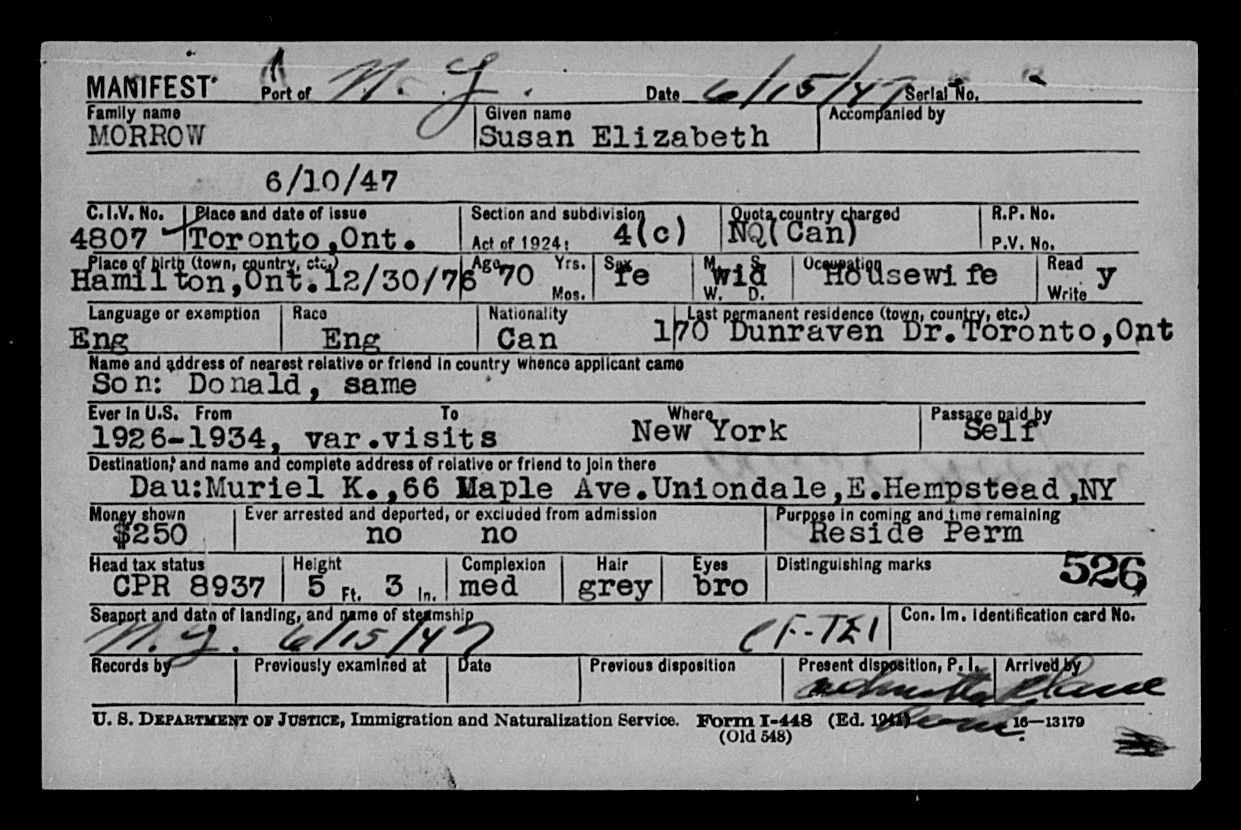 MANIFEST Port of N. Y. Date 6/15/47 Serial No.
Family name Given name Accompanied by
MORROW Susan Elizabeth
6/10/47
C.I.V. No. Place and date of issue Section and subdivision Quota country charged R.P. No.
4807 Toronto,Ont. Act of 1924: 4(c) NQ(Can) P.V. No.
Place of birth (town, country, etc.) Age Yrs. Sex M. S. Occupation Read
Hamilton,Ont.12/30/76 70 fe wid Housewife y
Mos. W. D. Write
Language or exemption Race Nationality Last permanent residence (town, country, etc.)
Eng Eng Can 170 Dunraven Dr.Toronto,Ont
Name and address of nearest relative or friend in country whence applicant came
Son: Donald, same
Ever in U.S. From To Where Passage paid by
1926-1934, var.visits New York Self
Destination, and name and complete address of relative or friend to join there
Dau:Muriel K.,66 Maple Ave.Uniondale,E.Hempstead,NY
Money shown Ever arrested and deported, or excluded from admission Purpose in coming and time remaining
$250 no no Reside Perm
Head tax status Height Complexion Hair Eyes Distinguishing marks 526
CPR 8937 5 Ft. 3 In. med grey bro
Seaport and date of landing, and name of steamship Con. Im. Identification card No.
N. Y. 6/15/47
Records by Previously examined at Date Previous disposition Present disposition, P. I. Arrived by
U. S. DEPARTMENT OF JUSTICE, Immigration and Naturalization Service. Form I-448 (Ed. 16—13179
(Old 548)